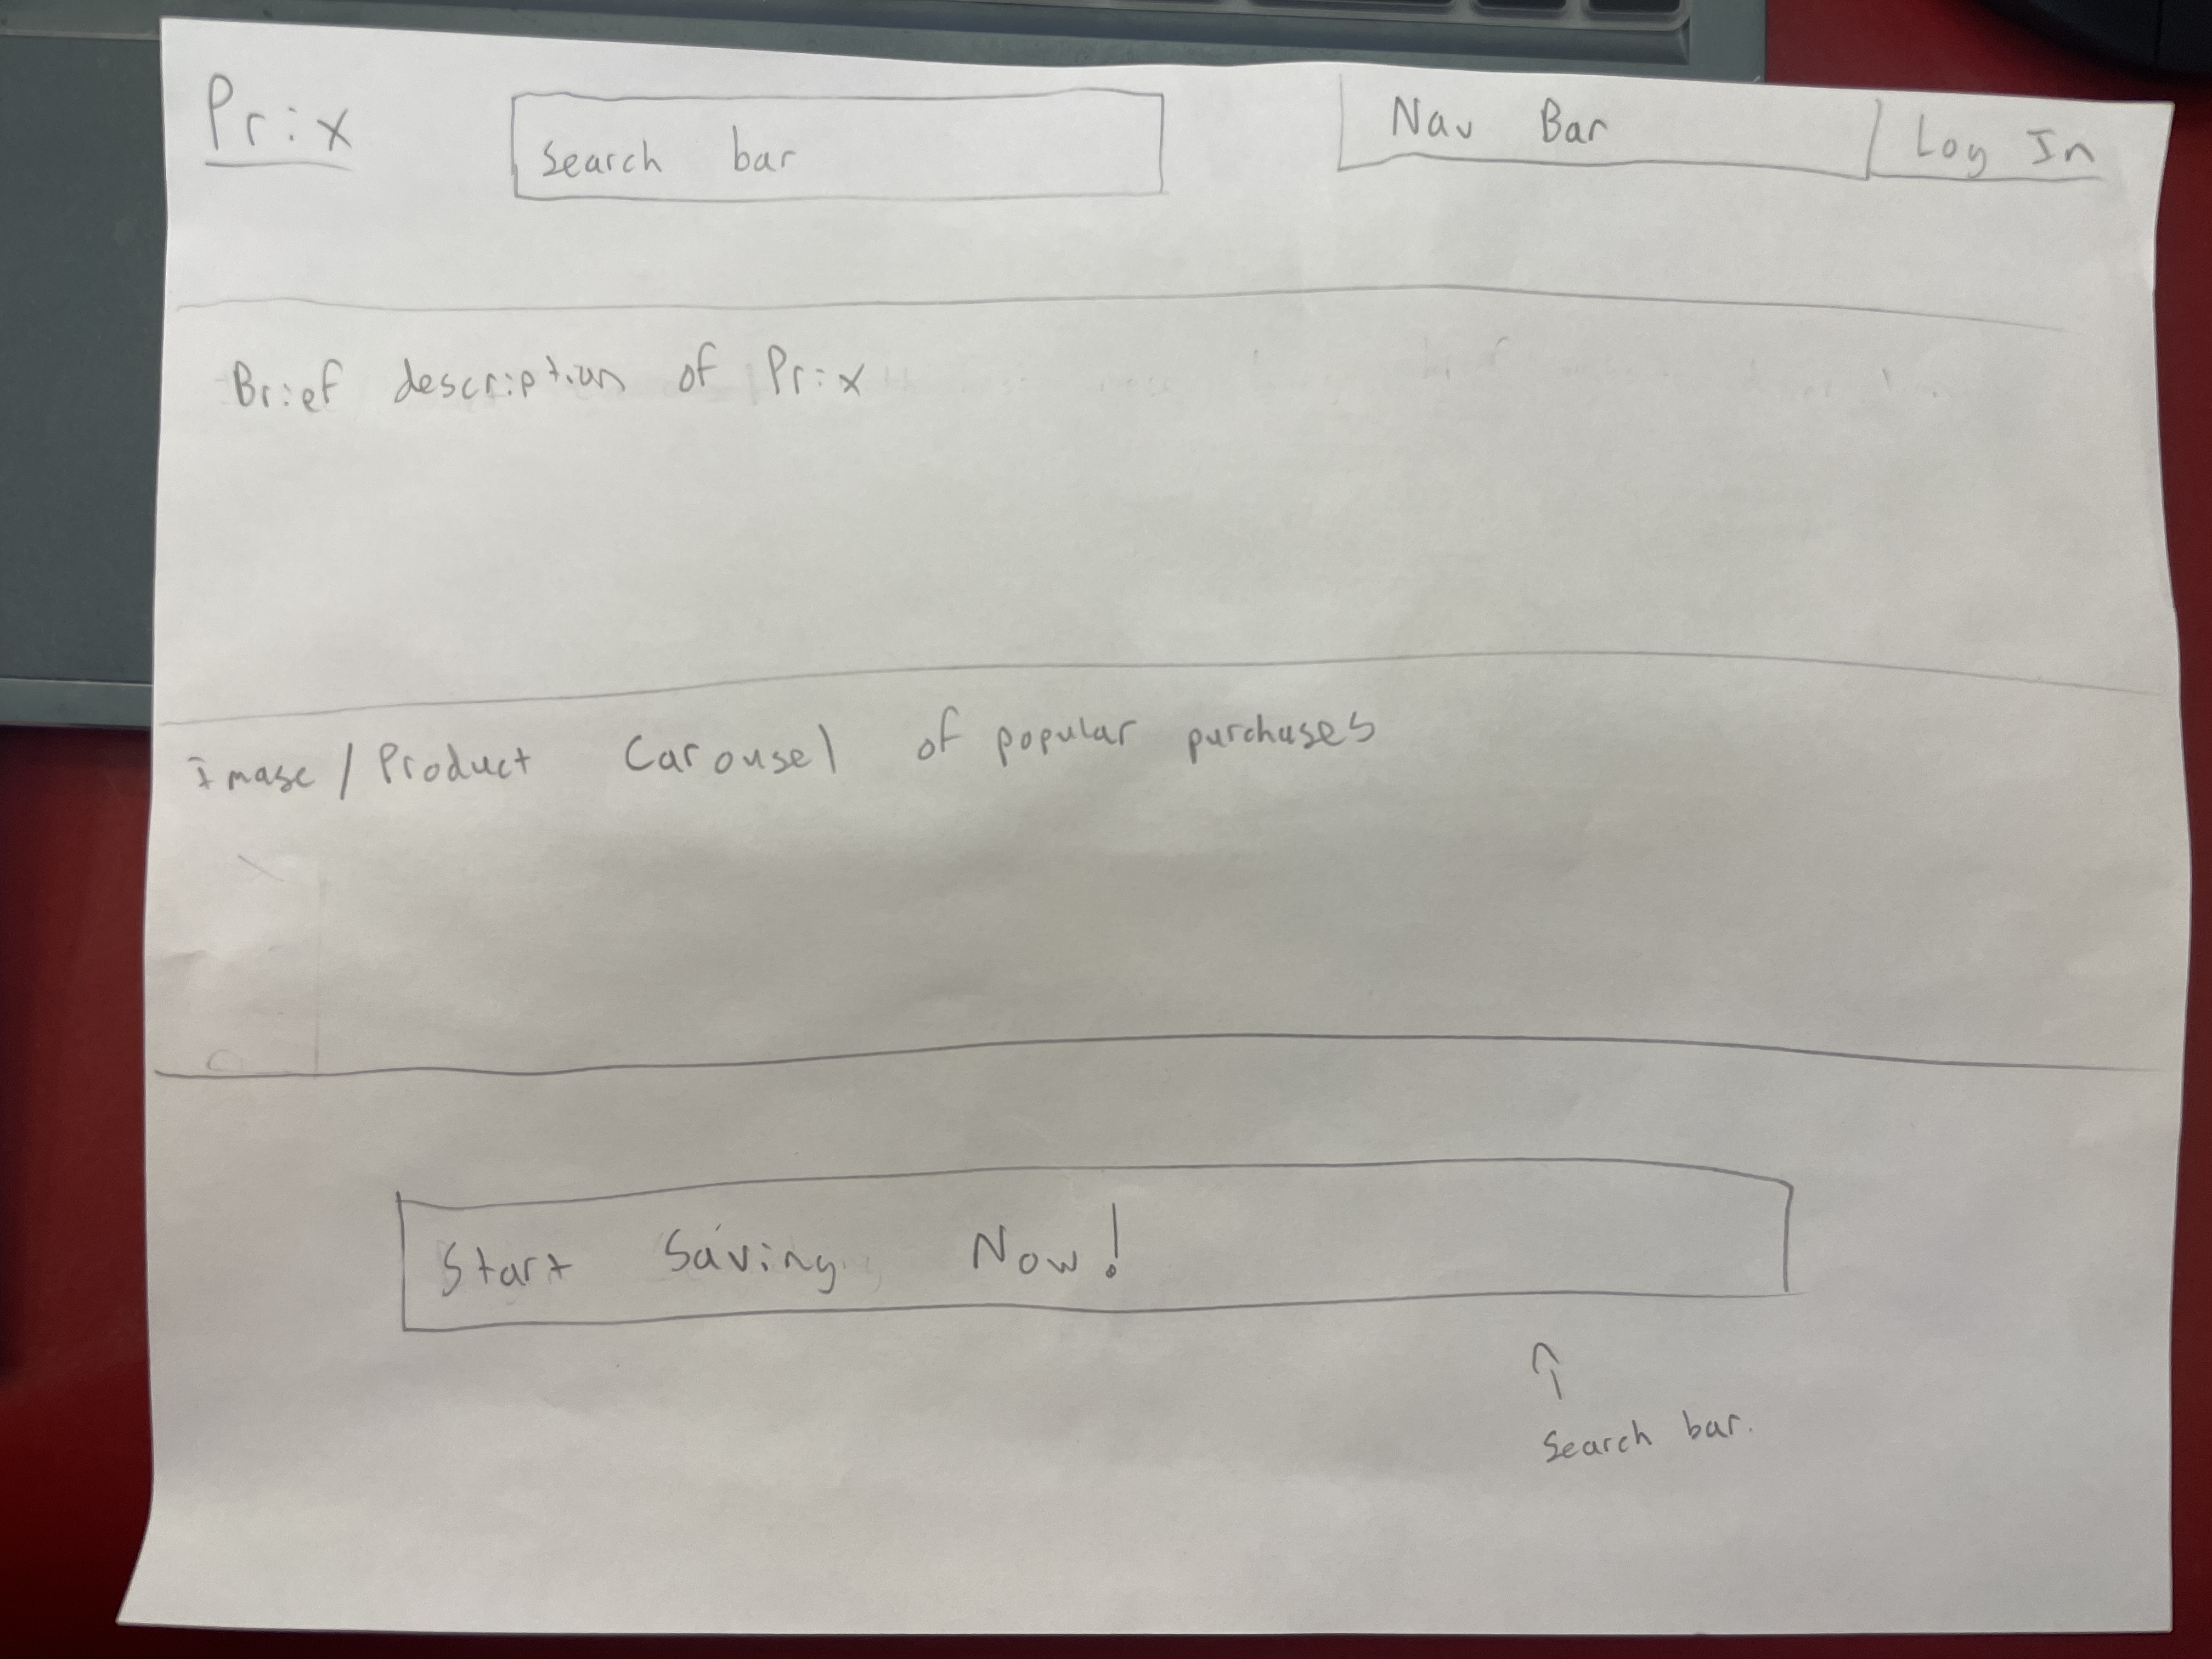 Prix
Search bar
Nav Bar
Log In
Brief description of Prix
Image / Product Carousel of popular purchases
Start Saving Now!
Search bar.